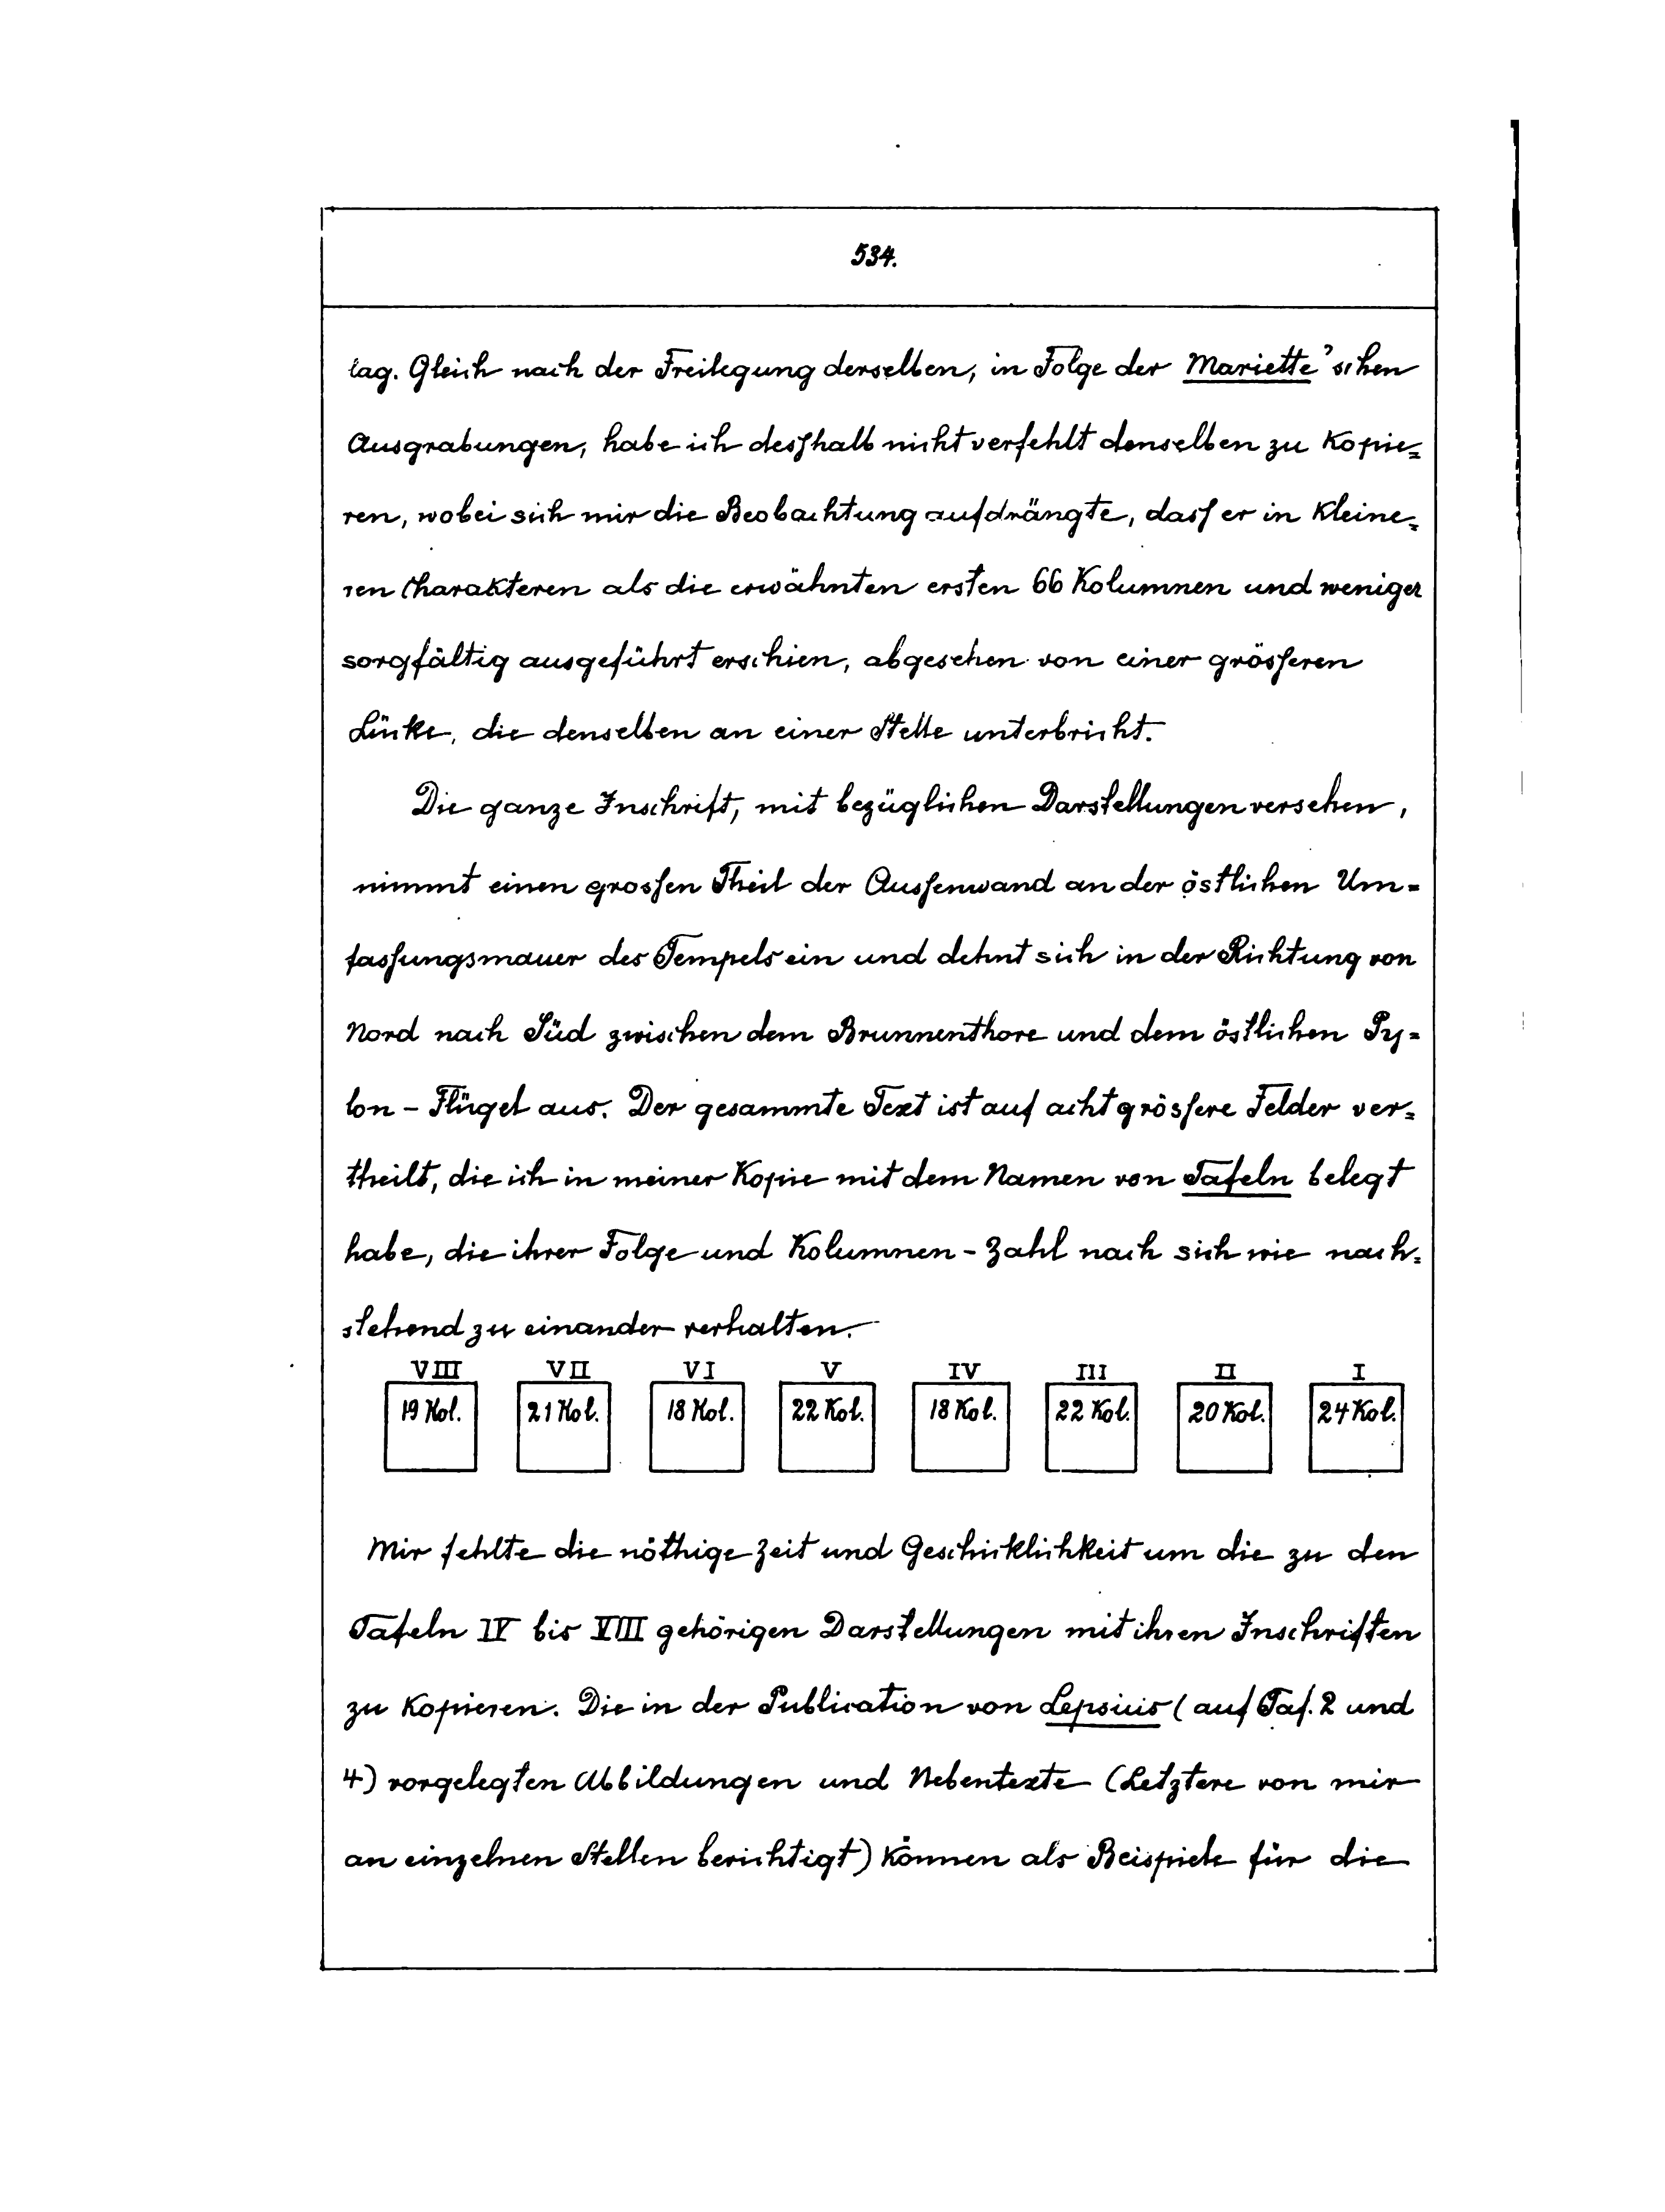 534.
lag. Gleich nach der Freilegung derselben, in Folge der Mariette'schen
Ausgrabungen, habe ich desshalb nicht verfehlt denselben zu kopie=
ren, wobei sich mir die Beobachtung aufdrängte, dass er in kleine=
ren Charakteren als die erwähnten ersten 66 Kolumnen und weniger
sorgfältig ausgeführt erschien, abgesehen von einer grösseren
Lücke, die denselben an einer Stelle unterbricht.
Die ganze Inschrift, mit bezüglichen Darstellungen versehen,
nimmt einen grossen Theil der Aussenwand an der östlichen Um=
fassungsmauer des Tempels ein und dehnt sich in der Richtung von
Nord nach Süd zwischen dem Brunnenthore und dem östlichen Py=
lon-Flügel aus. Der gesammte Text ist auf acht grössere Felder ver=
theilt, die ich in meiner Kopie mit dem Namen von Tafeln belegt
habe, die ihrer Folge und Kolumnen-Zahl nach sich wie nach=
stehend zu einander verhalten.
VIII VII VI V IV III II I
19 Kol. 21 Kol. 18 Kol. 22 Kol. 18 Kol. 22 Kol. 20 Kol. 24 Kol.
Mir fehlte die nöthige Zeit und Geschicklichkeit um die zu den
Tafeln IV bis VIII gehörigen Darstellungen mit ihren Inschriften
zu kopieren. Die in der Publication von Lepsius (auf Taf. 2 und
4) vorgelegten Abbildungen und Nebentexte (Letztere von mir
an einzelnen Stellen berichtigt) können als Beispiele für die